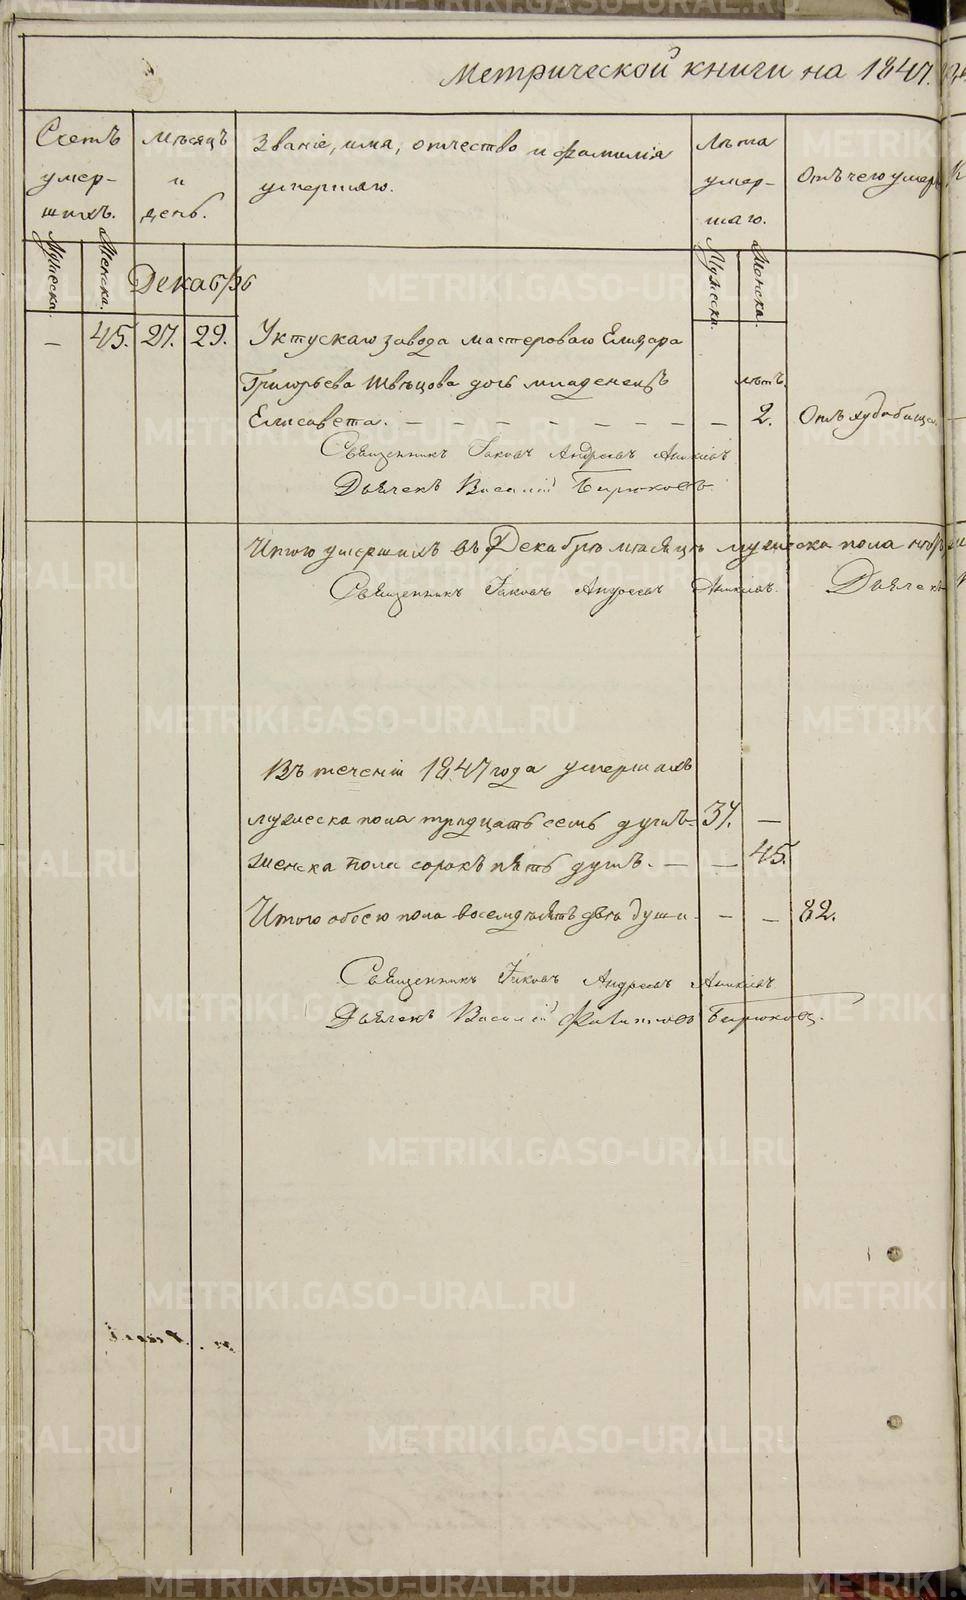 Метрической книги на 1847.
Счетъ умер-шихъ.
Мужеска.
Женска.
мѣсяцъ и день.
Званіе, имя, отчество и фамилія умершаго.
Лѣта умер-шаго.
Мужеска.
Женска.
Отъ чего умеръ
Декабрь
– 45. 27. 29. Уктускаго завода мастероваго Елизара
Григорьева Швецова дочь младенецъ лѣтъ.
Елисавета. – 2. Отъ худобища.
Священникъ Іаковъ Андреевъ
Дьячекъ Василій Бирюковъ
Итого умершихъ въ Декабрѣ мѣсяцѣ мужеска пола
Священникъ Іаковъ Андреевъ Дьячекъ
Въ теченіи 1847 года умершихъ
мужеска пола тридцать семь душъ – 37. –
женска пола сорокъ пять душъ. – – 45.
Итого обоего пола восемдесятъ двѣ души – – – 82.
Священникъ Іаковъ Андреевъ
Дьячекъ Василій Филиповъ Бирюковъ.
METRIKI.GASO-URAL.RU